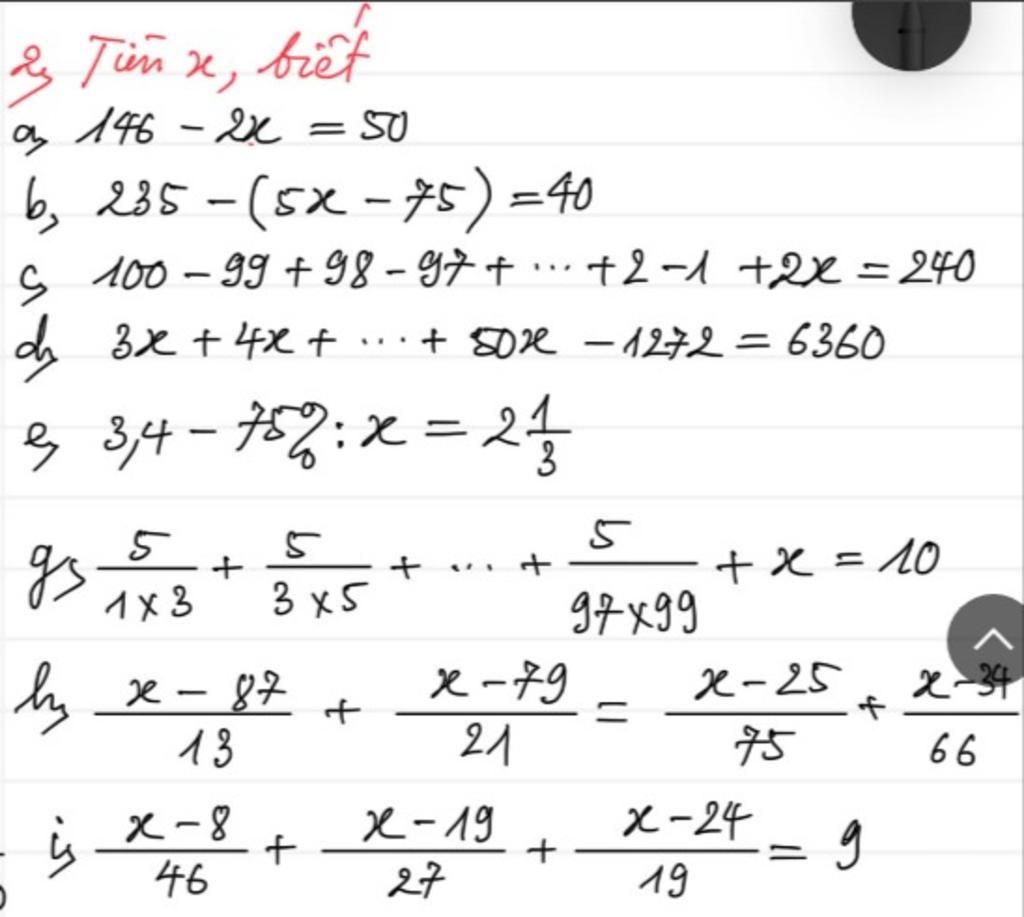 2, Tìm x, biết
a, 146 - 2x = 50
b, 235 - (5x - 75) = 40
c, 100 - 99 + 98 - 97 + ... + 2 - 1 + 2x = 240
d, 3x + 4x + ... + 50x - 1272 = 6360
e, 3,4 - 75% : x = 2 1/3
g, 5/(1x3) + 5/(3x5) + ... + 5/(97x99) + x = 10
h, (x - 87)/13 + (x - 79)/21 = (x - 25)/75 + (x - 34)/66
i, (x - 8)/46 + (x - 19)/27 + (x - 24)/19 = 9